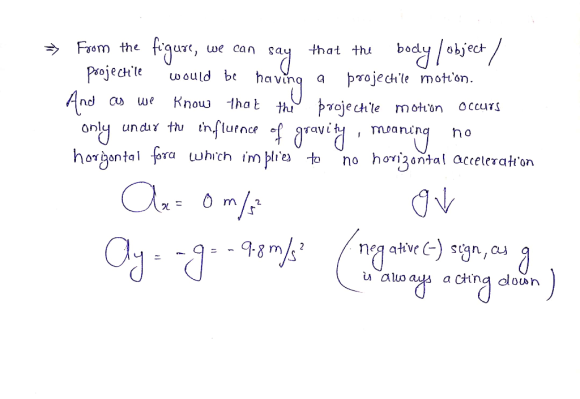 ⇒ From the figure, we can say that the body/object/
projectile would be having a projectile motion.
And as we know that the projectile motion occurs
only under the influence of gravity, meaning no
horizontal force which implies to no horizontal acceleration
ax = 0 m/s² g↓
ay = -g = -9.8 m/s² (negative (-) sign, as g
is always acting down)